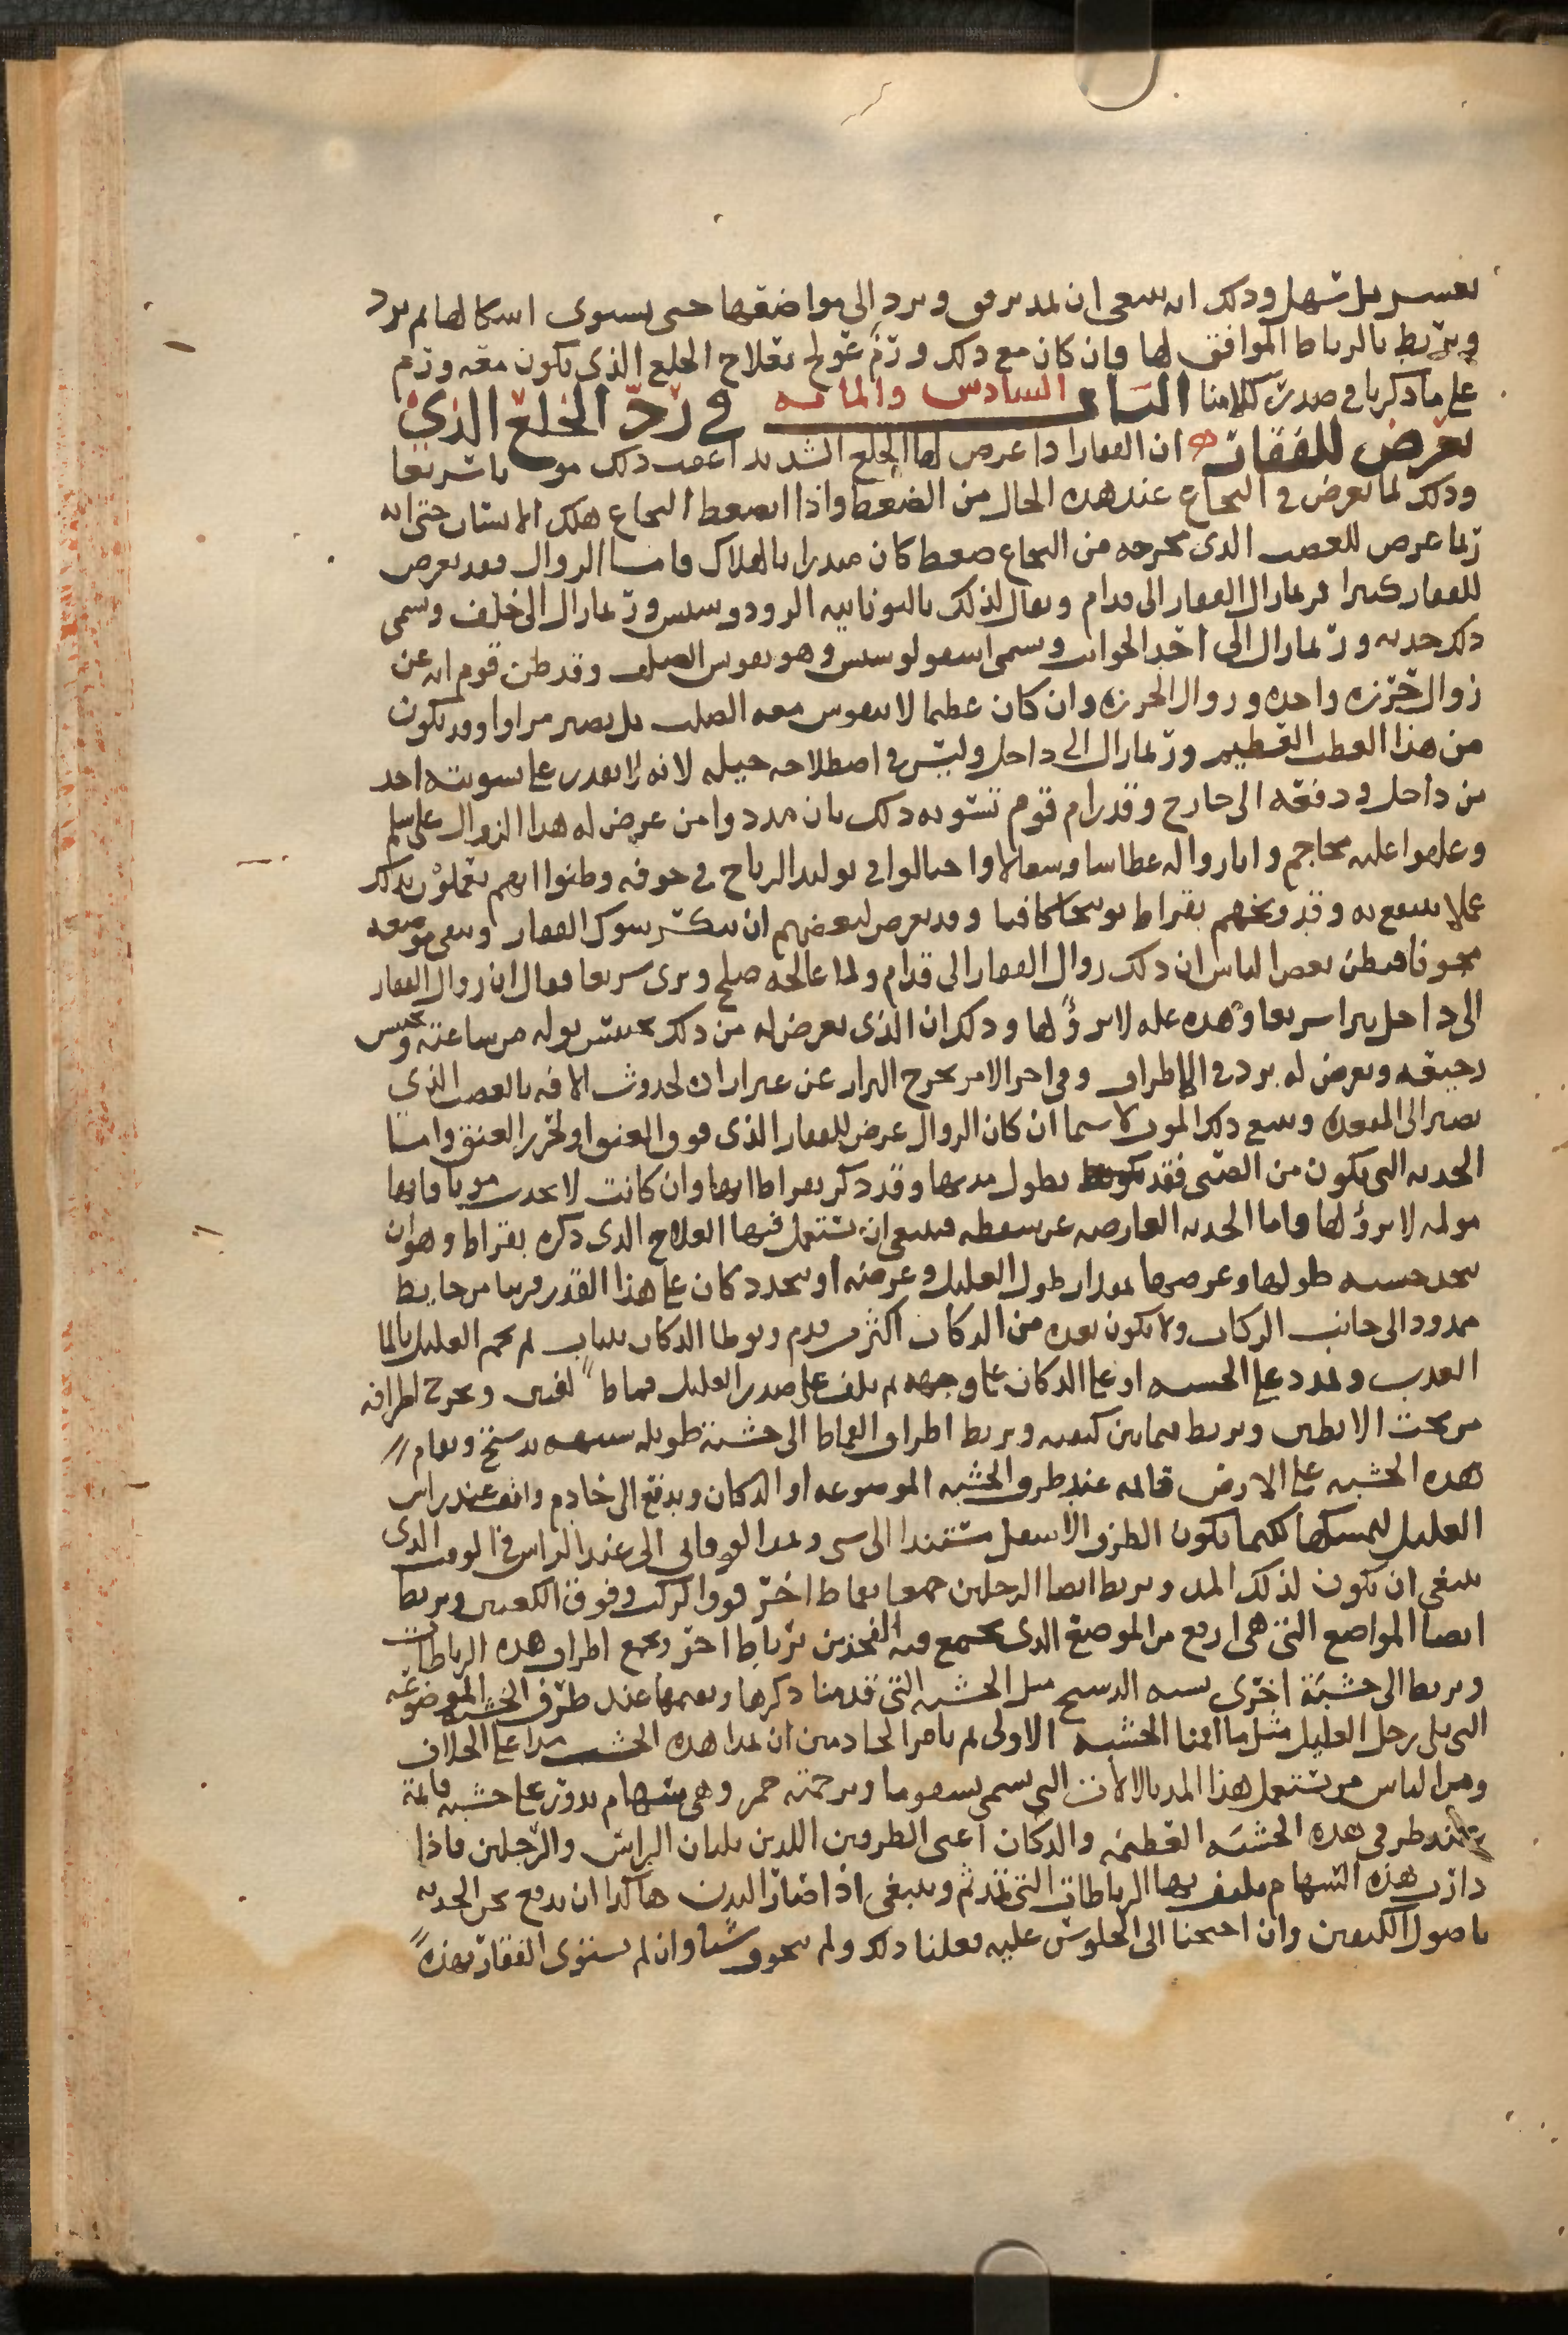 بعسر بل سهل ودلك انه ينبغى ان تمد برفق وترد الى مواضعها حتى يستوى اشكالها ثم ترد
وتربط بالرباط الموافق لها وان كان مع دلك ورم عولج بعلاج الخلع الذى يكون معه ورم
على ما ذكرنا فى صدر كلامنا الباب السادس والمائه فى رد الخلع الذى
يعرض للفقار ان الفقار اذا عرض لها الخلع الشديد اعقب ذلك موتا سريعا
وذلك لما يعرض فى النخاع عند هذه الحال من الضغط واذا انضغط النخاع هلك الانسان حتى انه
ربما عرض للعصب الذى مخرجه من النخاع ضغط كان منذرا بالهلاك فاما الزوال فقد يعرض
للفقار كثيرا فربما زال الفقار الى قدام ويقال لذلك باليونانيه الرودوسيس وربما زال الى خلف وسمى
ذلك حدبه وربما زال الى احد الجوانب وسمى اسقولوسيس وهو تقويس الصلب وقد ظن قوم انه عن
زوال خرزه واحده وزوال الخرزه وان كان عظيما لا يتقوس معه الصلب بل يصير مزاوا وقد يكون
من هذا العطب العظيم وربما زال الى داخل وليس فى اصطلاحه حيله لانه لا يقدر على تسويته احد
من داخل ودفعه الى خارج وقد رام قوم تسويه ذلك بان مددوا من عرض له هذا الزوال على سلم
وعلقوا عليه محاجم واثاروا له عطاسا وسعالا واحتالوا فى توليد الرياح فى جوفه وظنوا انهم يعملون بذلك
عملا ينتفع به وقد وبخهم بقراط توبيخا كافيا وقد يعرض لبعضهم ان ينكسر شوك الفقار ويبقى موضعه
مجوفا فيظن بعض الناس ان ذلك زوال الفقار الى قدام ولما عالجه صلح وبرى سريعا فقال ان زوال الفقار
الى داخل يبرا سريعا وهذه عله لا برؤ لها وذلك ان الذى يعرض له من ذلك يحتبس بوله من ساعته ويحتبس
رجيعه ويعرض له برد فى الاطراف وفى اخر الامر يخرج البراز عن غير اراده لحدوث الافه بالعصب الذى
يصير الى المقعده ويتبع ذلك الموت لا سيما ان كان الزوال عرض للفقار الذى فوق العنق او لخرز العنق واما
الحدبه التى تكون من الصبى فقد يطول مدتها وقد ذكر بقراط انها وان كانت لا تحدث موتا فانها
موله لا برؤ لها فاما الحدبه العارضه عن سقطه فينبغى ان تستعمل فيها العلاج الذى ذكره بقراط وهو ان
يتخذ خشبه طولها وعرضها بمقدار طول العليل وعرضه او يتخذ دكان على هذا القدر قريبا من حايط
ممدود الى جانب الدكان ولا يكون بعده من الدكان اكثر من قدم ويوطا الدكان بثياب ثم يحم العليل بالما
العذب ويمدد على الخشبه او على الدكان على وجهه ثم يلف على صدر العليل قماط لفتين ويخرج اطرافه
من تحت الابطين ويربط فيما بين كتفيه ويربط اطراف القماط الى خشبة طويله شبيهه بدستج ويقام
هذه الخشبه على الارض قائمه عند طرف الخشبه الموضوعه او الدكان ويدفع الى خادم واقف عند راس
العليل ليمسكها لكيما يكون الطرف الاسفل مستندا الى شى ويمد الفوقانى الى عند الراس فى الوقت الذى
ينبغى ان يكون لذلك المد ويربط ايضا الرجلين جميعا بقماط اخر فوق الركب وفوق الكعبين ويربط
ايضا المواضع التى هى ارفع من الموضع الذى يجتمع فيه الفخذين برباط اخر ويجمع اطراف هذه الرباطات
ويربط الى خشبة اخرى شبيه الدستج مثل الخشبه التى قدمنا ذكرها ويقيمها عند طرف الخشبه الموضوعه
التى تلى رجل العليل مثل ما اقمنا الخشبه الاولى ثم نامر الخادمين ان يمدا هذه الخشب مدا على الخلاف
ومن الناس من يستعمل هذا المد بالالات التى تسمى وترجمته حمر وهى سهام تدور على خشبه قائمة
عند طرفى هذه الخشبه العظيمه والدكان اعنى الطرفين اللذين يليان الراس والرجلين فاذا
دارت هذه السهام يلف بها الرباطات التى تمد ثم وينبغى اذا صار البدن هاكذا ان يدفع نحن الحدبه
باصول الكفين وان احتجنا الى الجلوس عليه فعلنا ذلك ولم نتخوف شيا وان لم يستوى الفقار بهذه